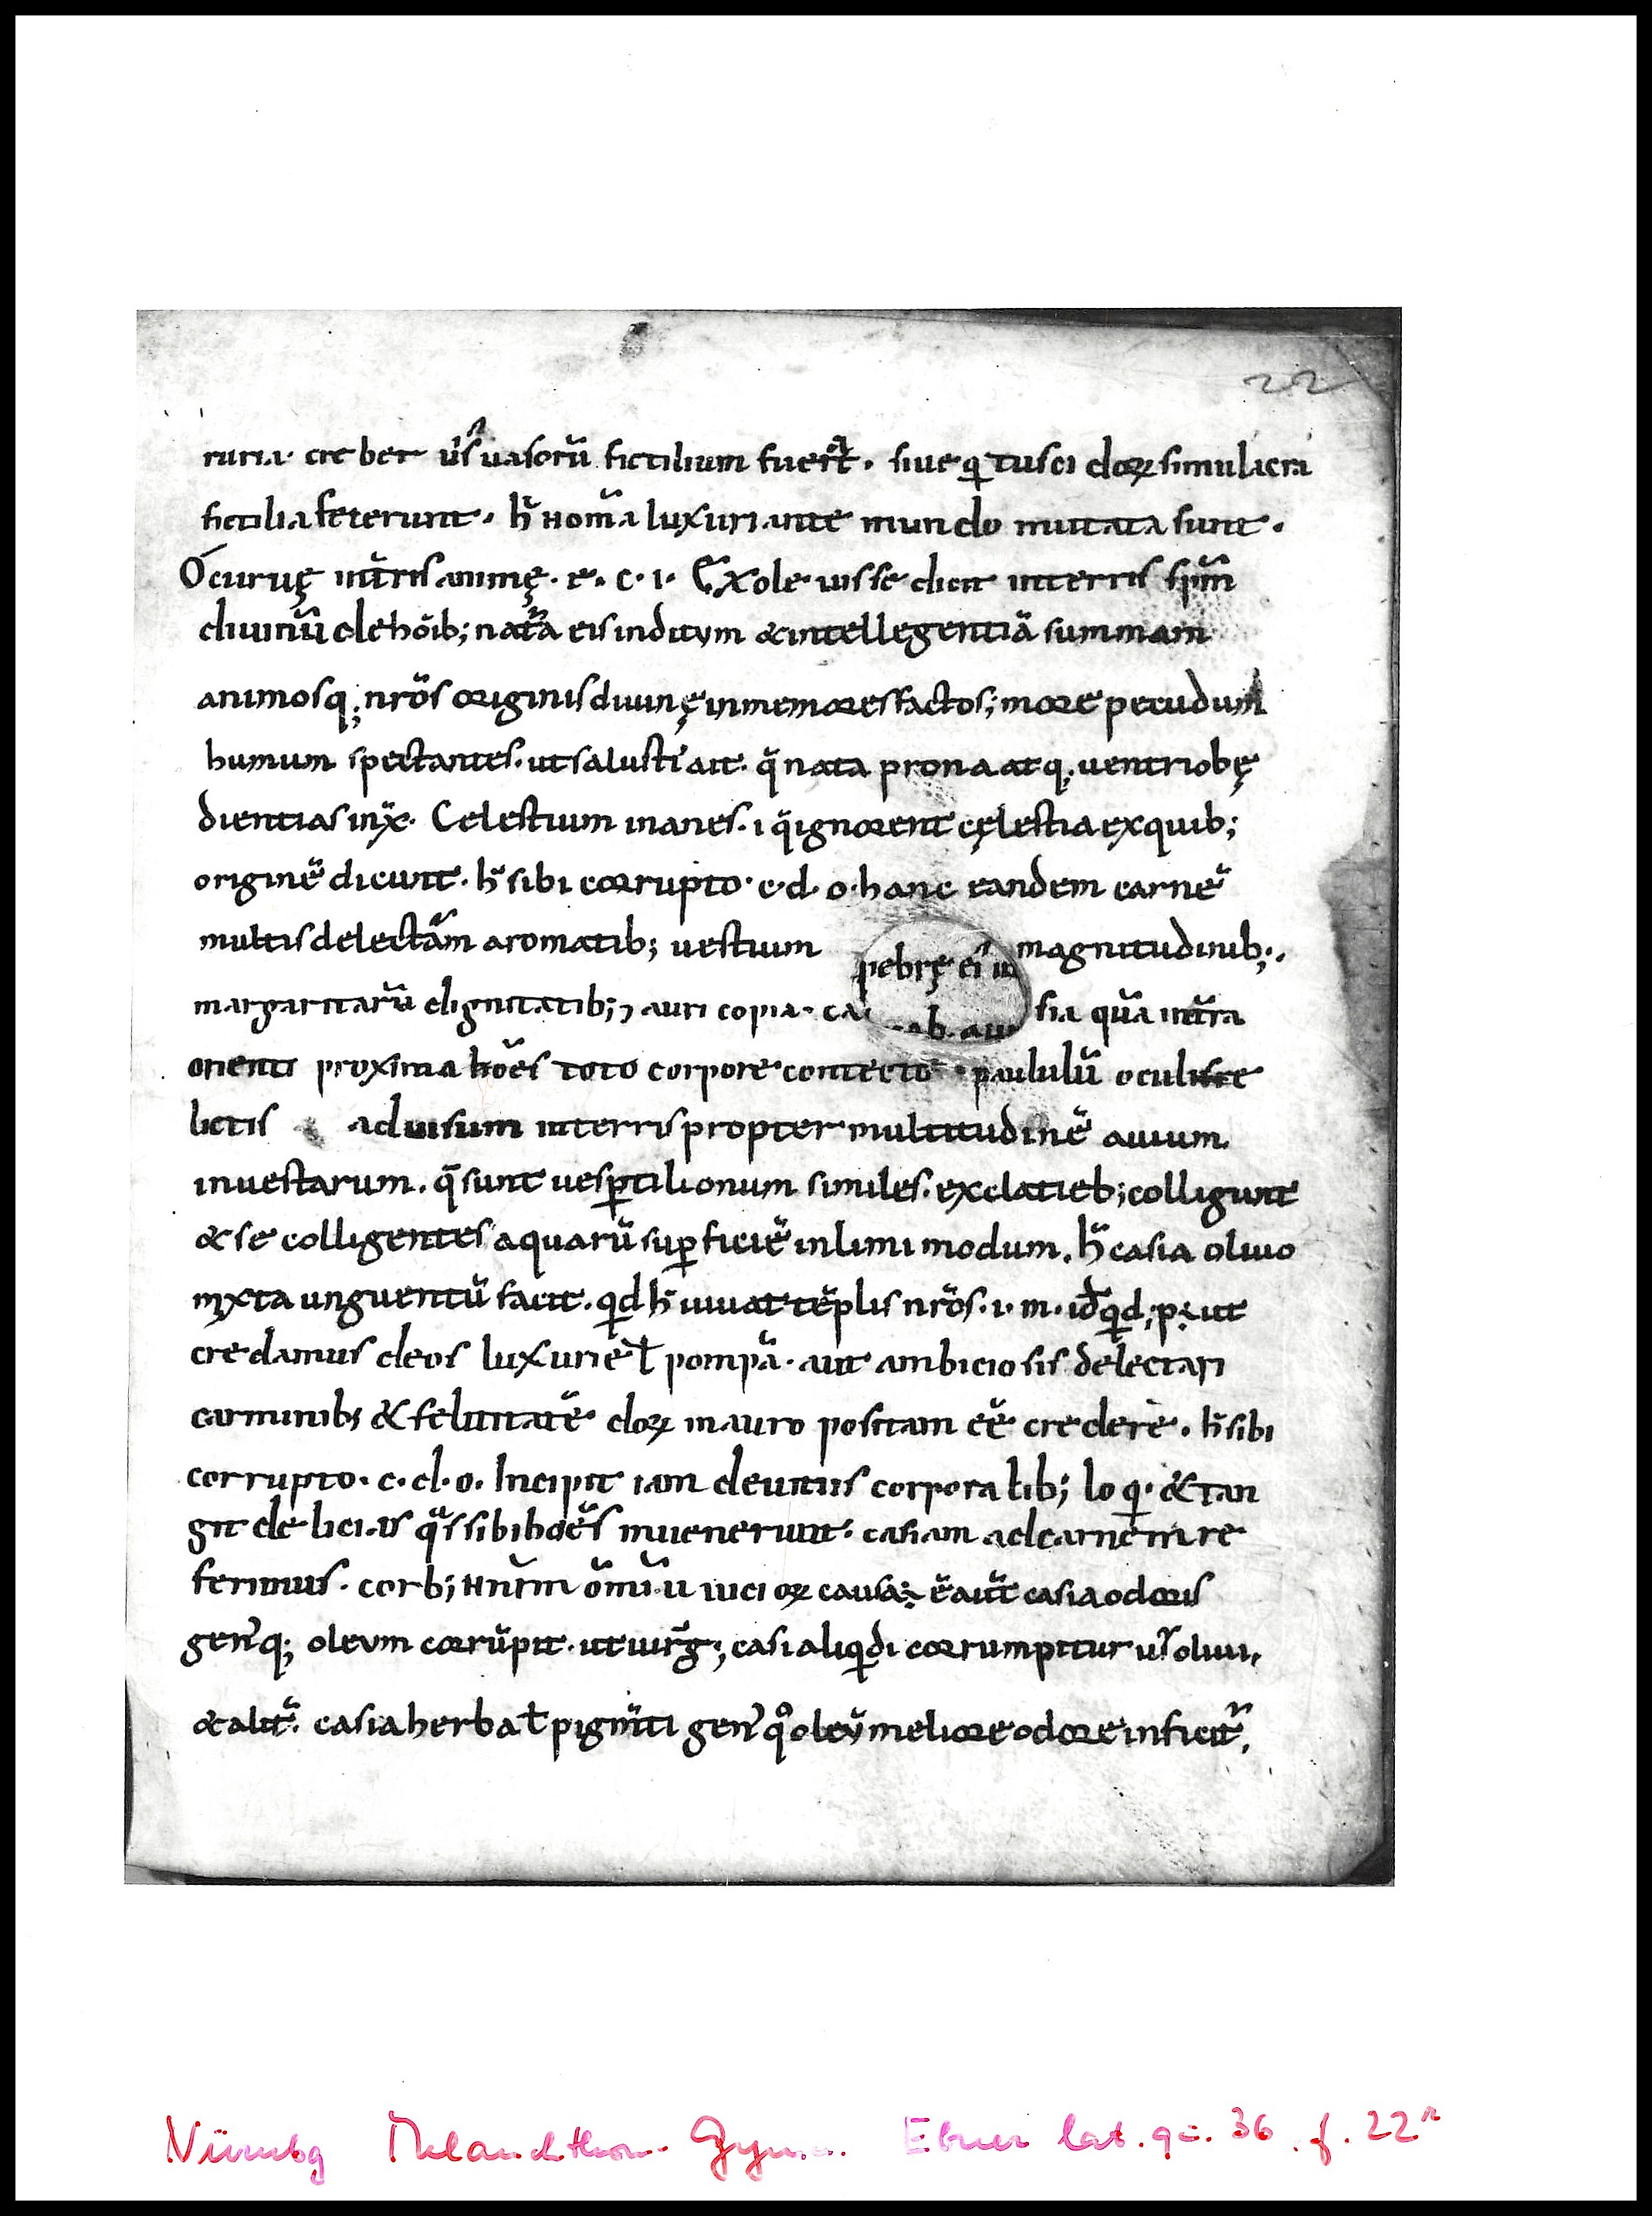 22
ruria· creber us̓ uasorũ fictilium fuer̃t. siue q̣ tusci doꝝ simulacra
fictilia fecerunt. h̃ nom̃a luxuriante mundo mutata sunt.
O curuę int̃ris animę· e· c· i· Exoleuisse dicit interris sp̃m
diuinũ de hõib; nat̃a eis inditum & intellegentiã summam
animosq; nr̃os originis diuinę inmemores factos; more pecudum
humum spectantes. ut salusti' ait. q̃ nata prona atq; uentri obę
dientia sinx̃. Celestium inanes. i q̃ ignorent cęlestia ex quib;
originẽ dicunt. h̃ sibi corrupto· c· d· o· hanc eandem carnẽ
multis delectãm aromatib; uestium magnitudinib;.
margaritarũ dignitatib; ⁊ auri copia· ca sia quã int̃ra
pebrę ei in
ab. aui
orienti proxima hõẽs toto corpore contecto· paululũ oculis re
lictis ad uisum interris propter multitudinẽ auium
inuestarum. q̃ sunt uesꝑtilionum similes. ex clatieb; colligunt
& se colligentes aquarũ suꝑficiẽ inlimi modum. h̃ casia oliuo
mixta unguentũ facit. qd h̃ iuuat tẽplis nr̃os· i· m· id qd; p; ut
credamus deos luxurię ł pompã· aut ambiciosis delectari
carminib; & felicitatẽ doꝝ in auro positam eẽ credere. h̃ sibi
corrupto· c· d· o· Incipit iam deuitiis corporalib; loq̣· & tan
git delicias q̃s sibi hõẽs inuenerunt· casiam ad carnem re
ferimus· corb; nr̃m õmiũ uicioꝝ causa; ẽ aũt casia odoris
gen' q; oleum corrũpit· ut uirg̃; casia liqdi corrumpitur us̓ oliui,
& alit̃· casia herba ł pigm̃ti gen' q° oleũ meliore odore inficit̃,
Nürnbg Melanchthon-Gymn. Ebner lat. qu. 36 f. 22r